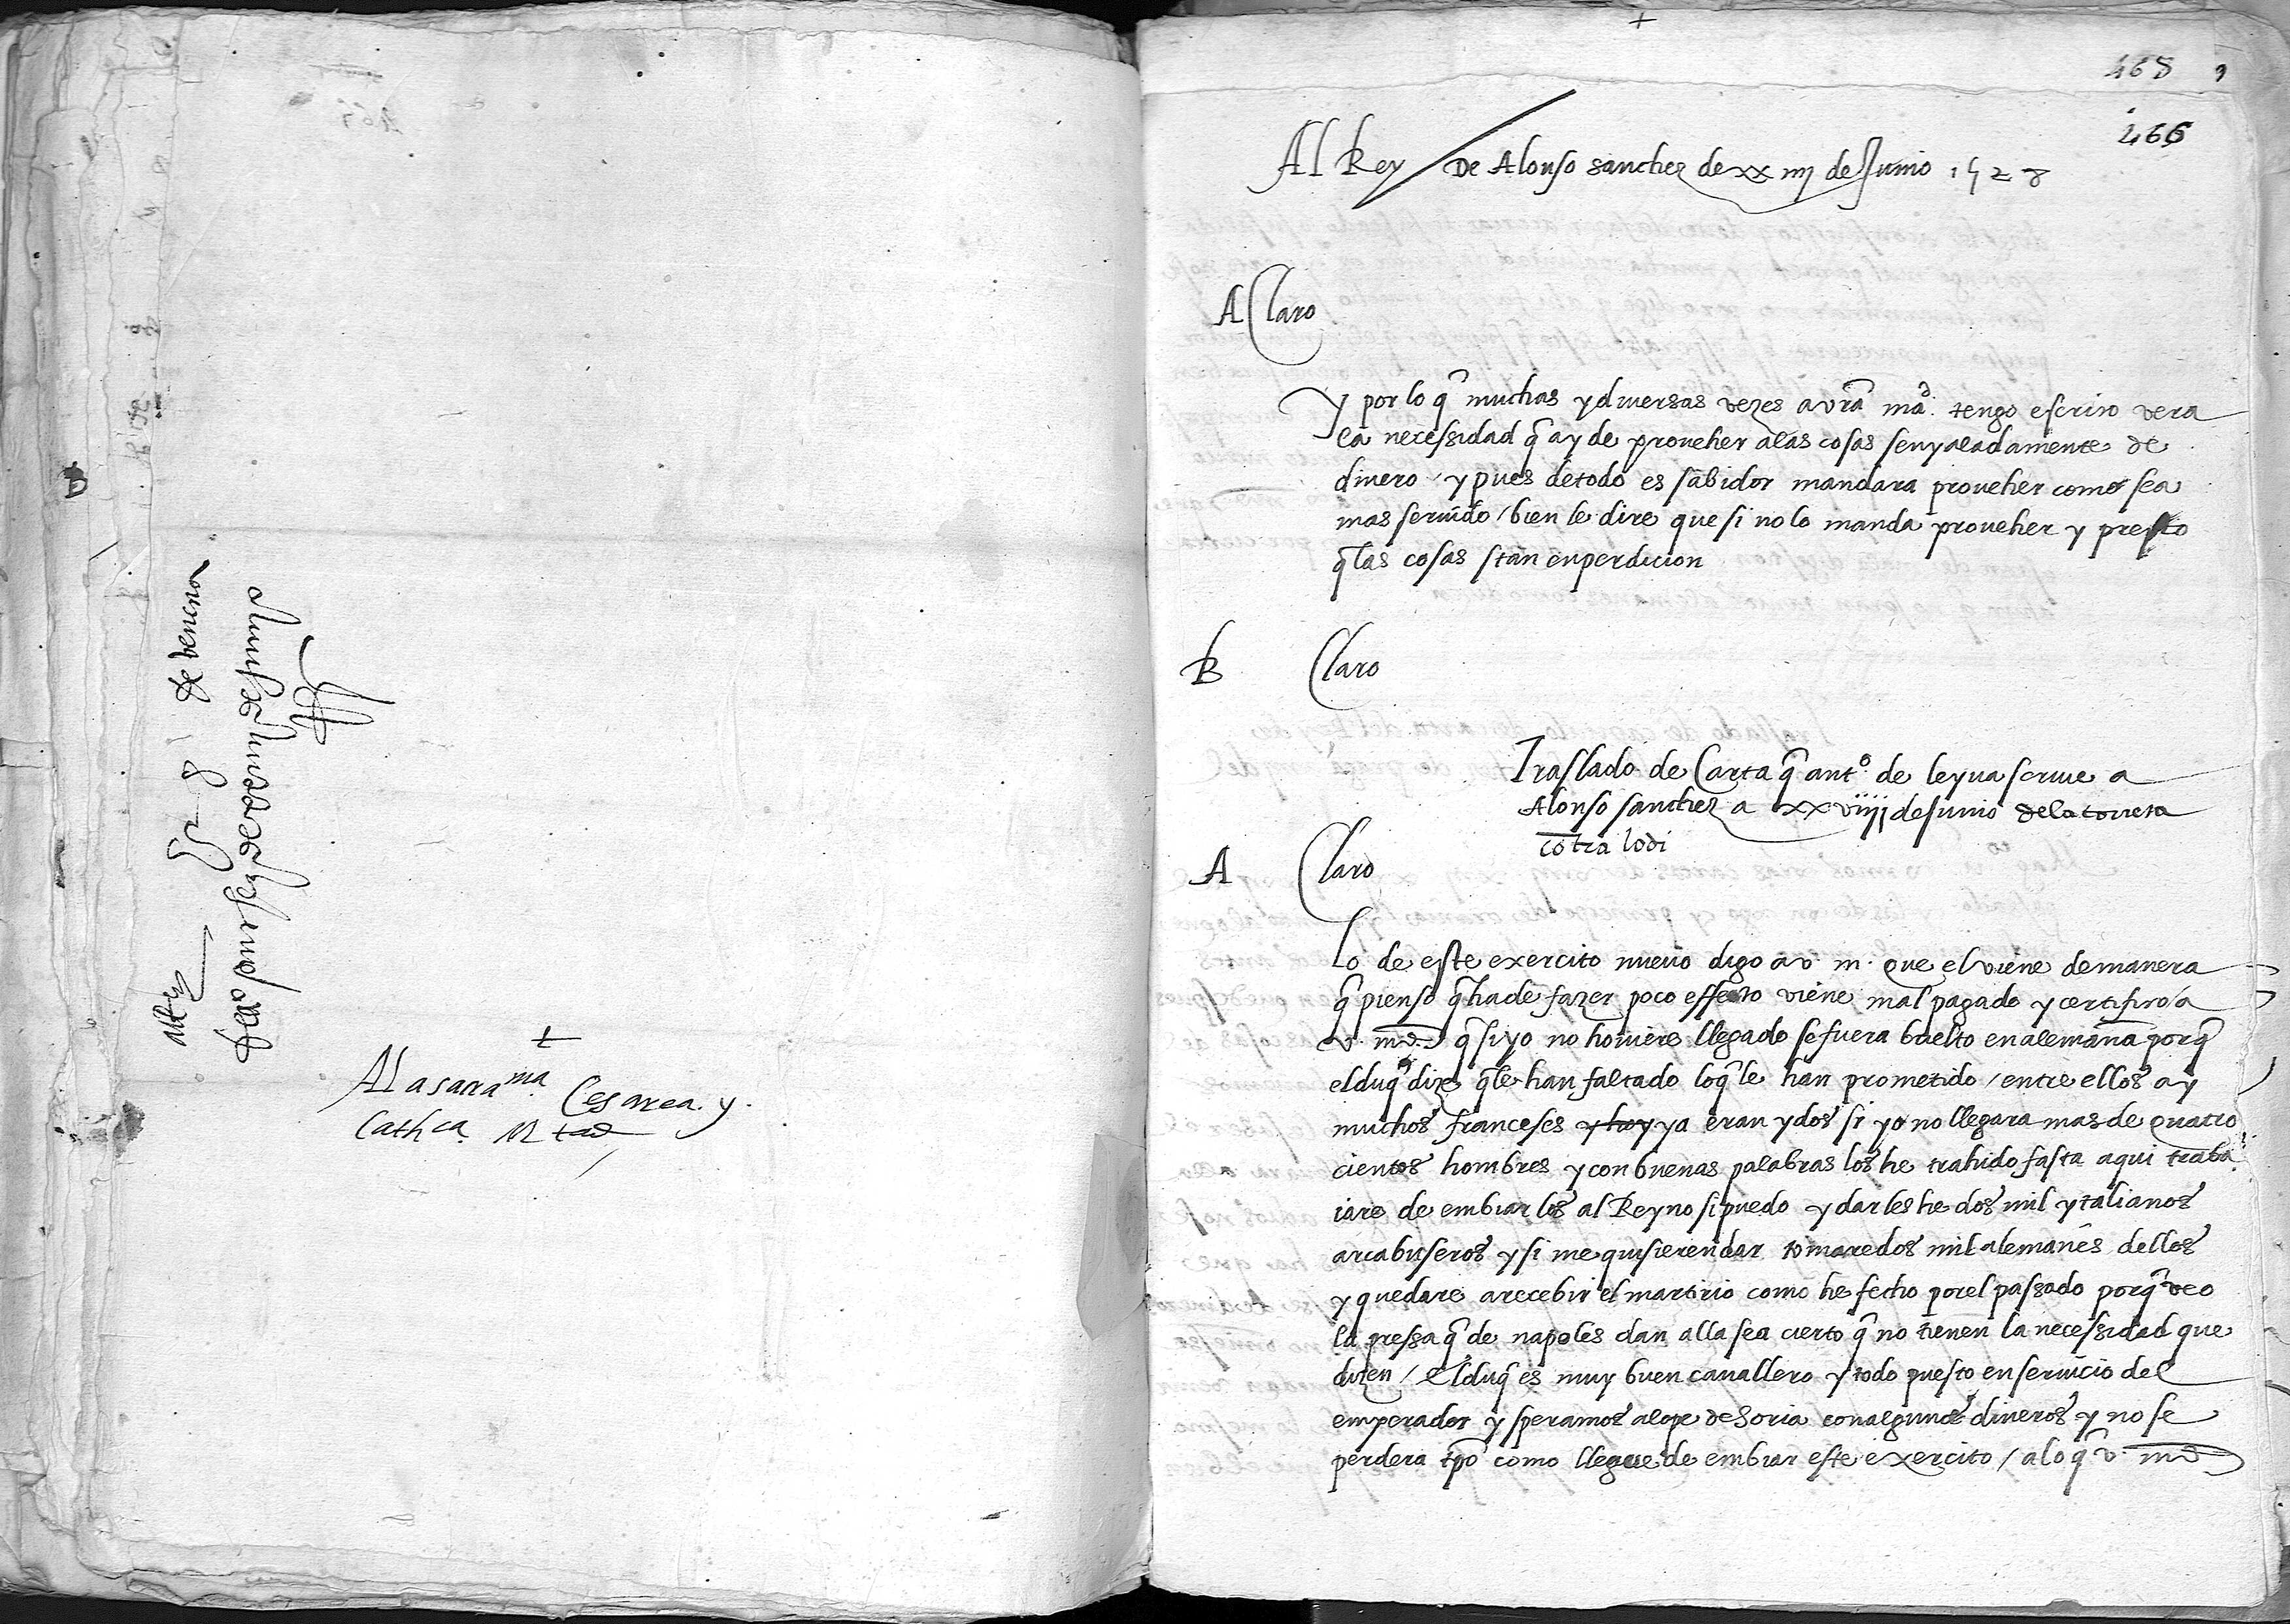 +
A la sacra ma Cesarea y
Cathca. Mtad
de venecia
+
468
466
Al Rey / De Alonso sanchez de xx iiij de Junio 1528
A Claro
Y por lo q̃ muchas y diuersas vezes a vrã mad. tengo escrito vera
la necessidad q̃ ay de proueher a las cosas senyaladamente de
dinero / y pues de todo es sabidor mandara proueher como sea
mas seruido / bien le dire que si no lo manda proueher y presto
q̃ las cosas stan en perdicion
B Claro
Traslado de Carta q̃ anto. de leyua scriue a
Alonso sanchez a xxviiij de Junio de la torreta
cõtra lodi
A Claro
Lo de este exercito nueuo digo a v. m. que el viene de manera
q̃ pienso q̃ ha de fazer poco effecto viene mal pagado y certifico a
v. md. q̃ si yo no houiere llegado se fuera buelto en alemaña porq̃
el duq̃ dize q̃ le han faltado lo q̃ le han prometido / entre ellos ay
muchos franceses y hoy ya eran ydos si yo no llegara mas de quatro
cientos hombres y con buenas palabras los he trahido fasta aqui traba
iare de embiar los al Reyno si puedo y dar les he dos mil ytalianos
arcabuseros y si me quisieren dar tomare dos mil alemanes dellos
y quedare a recebir el martirio como he fecho por el passado porq̃ veo
la pressa q̃ de napoles dan alla sea cierto q̃ no tienen la necessidad que
dizen / El duq̃ es muy buen cauallero y todo puesto en seruicio del
emperador y speramos a lope de Soria con algunos dineros y no se
perdera tpõ como llegue de embiar este exercito / a lo q̃ v. md